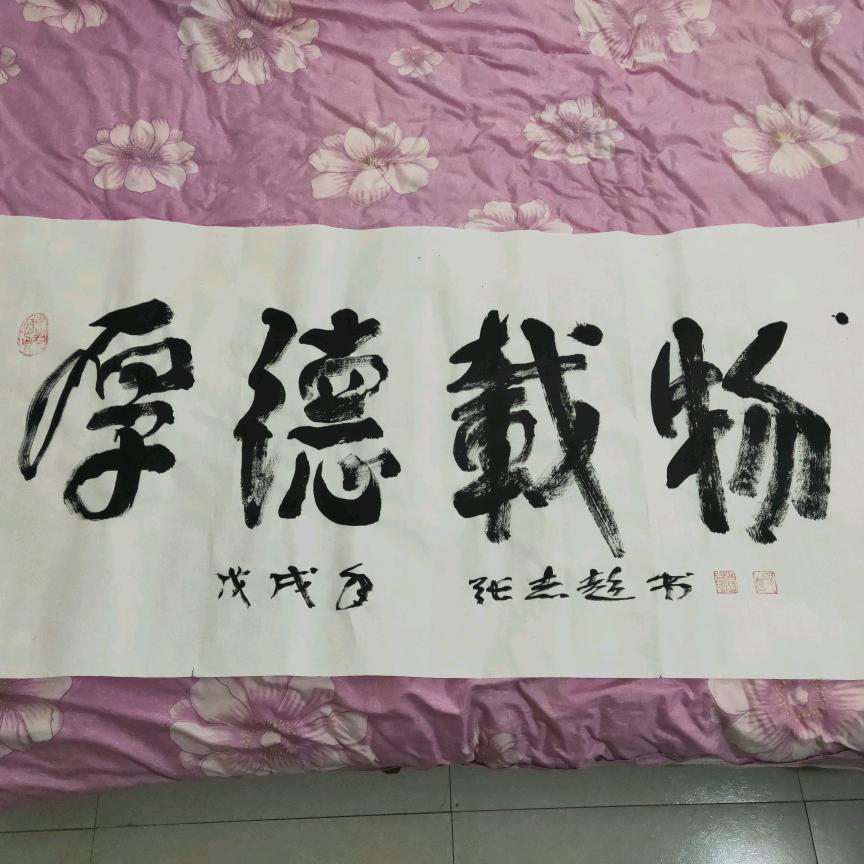 厚德載物
戊戌年 张志超书